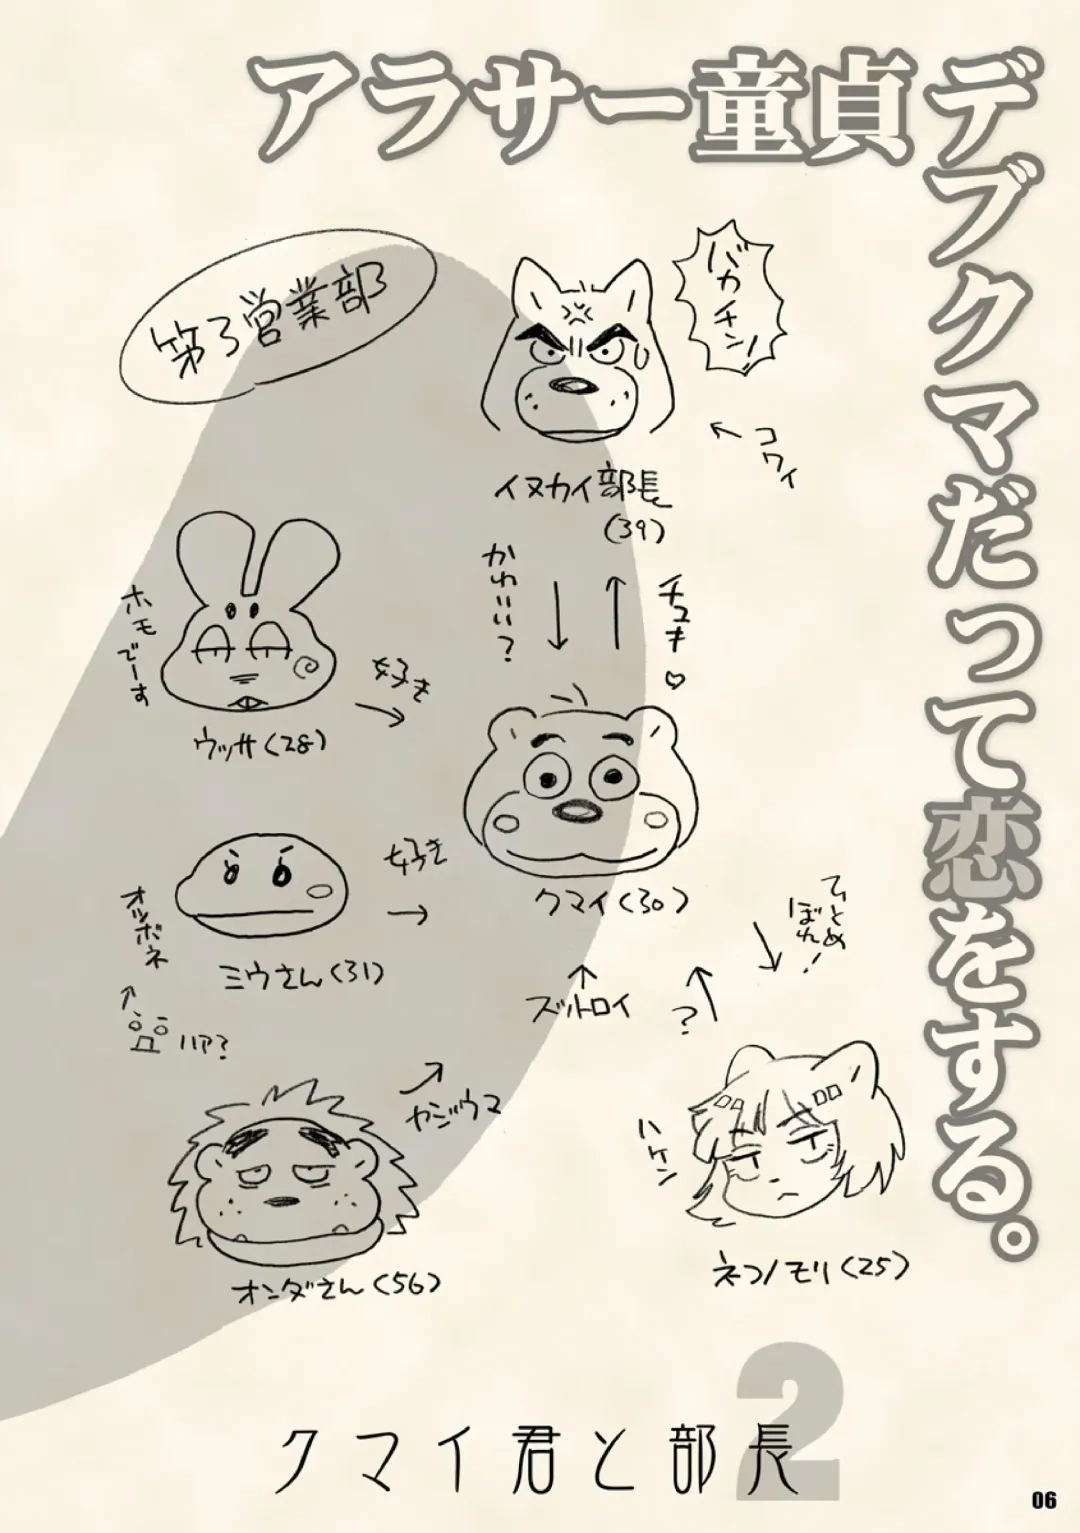 アラサー童貞デブクマだって恋をする。
第3営業部
バカチン!
コワイ
イヌカイ部長
(39)
かわいい?
チュキ♡
ホモでーす
好き
ウッサ(28)
好き
オツボネ
ミウさん(31)
ハァ?
クマイ(30)
ひとめ
ぼれ!
ズットロイ
?
ヤジウマ
オンダさん(56)
ハケン
ネコノモリ(25)
2
クマイ君と部長
06